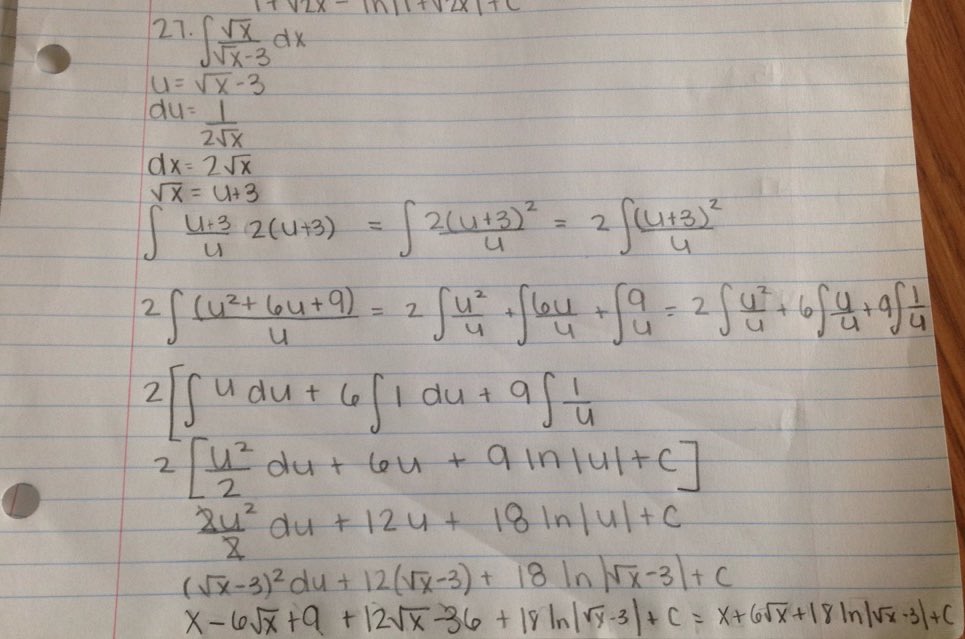 1+√2x - ln|1+√2x|+C
27. ∫ √x/(√x-3) dx
u = √x-3
du = 1/(2√x)
dx = 2√x
√x = u+3
∫ (u+3)/u 2(u+3) = ∫ 2(u+3)²/u = 2∫ (u+3)²/u
2∫ (u²+6u+9)/u = 2∫ u²/u + ∫ 6u/u + ∫ 9/u = 2∫ u²/u + 6∫ u/u + 9∫ 1/u
2[∫ u du + 6∫ 1 du + 9∫ 1/u
2[u²/2 du + 6u + 9 ln|u|+C]
2u²/2 du + 12u + 18 ln|u|+C
(√x-3)² du + 12(√x-3) + 18 ln|√x-3|+C
x-6√x+9 + 12√x-36 + 18 ln|√x-3|+C = x+6√x+18 ln|√x-3|+C